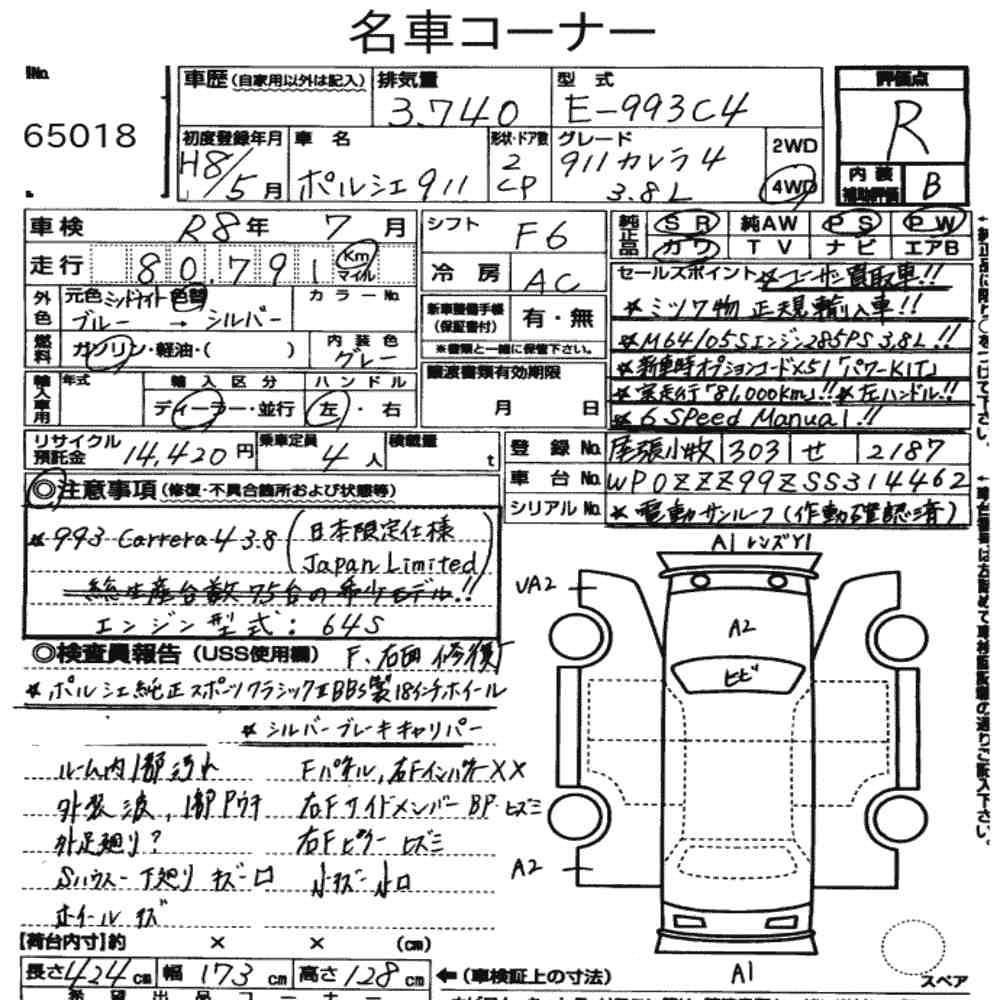 名車コーナー
No. 車歴 (自家用以外は記入) 排気量 型式 評価点
65018 3.740 E-993C4 R
初度登録年月 車名 形状・ドア数 グレード 2WD
H8/5月 ポルシェ911 2 CP 911カレラ4 3.8L 4WD
内装補助評価 B
車検 R8年 7月 シフト F6
走行 80,791 Km マイル 冷房 AC
純正品 SR 純AW PS PW
カワ TV ナビ エアB
外色 元色 ミッドナイト 色替 カラーNo.
ブルー → シルバー
新車整備手帳(保証書付) 有・無
※書類と一緒に保管下さい。
燃料 ガソリン・軽油・( ) 内装色 グレー
輸入車用 年式 輸入区分 ハンドル
ディーラー・並行 左・右
譲渡書類有効期限
月 日
セールスポイント ★ユーザー買取車!!
★ミツワ物 正規輸入車!!
★M64/05Sエンジン285PS 3.8L!!
★新車時オプションコードX51「パワーKIT」
★実走行「81,000km」!! ★左ハンドル!!
★6 Speed Manual!!
リサイクル預託金 14,420円 乗車定員 4人 積載量 t
登録No. 尾張小牧 303 せ 2187
車台No. WP0ZZZ99ZSS314462
シリアルNo. ★電動サンルーフ(作動確認済)
◎注意事項 (修復・不具合箇所および状態等)
★993 Carrera4 3.8 (日本限定仕様
Japan Limited)
総生産台数 75台の希少モデル!!
エンジン型式: 64S
◎検査員報告 (USS使用欄) F、右回 修復
★ポルシェ純正スポーツクラシックⅡBBS製18インチホイール
★シルバーブレーキキャリパー
ルーム内1部汚れ Fパネル,右FインナーXX
外装 波,1部Pウチ 右Fサイドメンバー BP ヒズミ
外足廻り? 右Fピラー ヒズミ
Sハウス-下廻り キズ-ロ 小キズ小ロ
ホイールキズ
【荷台内寸】約 × × (cm)
長さ424cm 幅173cm 高さ128cm
←(車検証上の寸法)
A1 レンズY1
UA2
A2
ヒビ
A2
A1
スペア